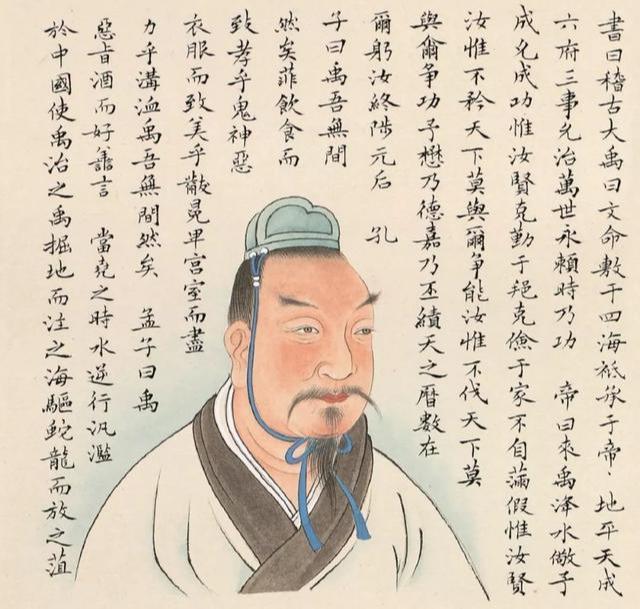 書曰稽古大禹曰文命敷于四海祗承于帝地平天成
六府三事允治萬世永賴時乃功　帝曰來禹洚水儆予
成允成功惟汝賢克勤于邦克儉于家不自滿假惟汝賢
汝惟不矜天下莫與爾爭能汝惟不伐天下莫
與爾爭功予懋乃德嘉乃丕績天之曆數在
爾躬汝終陟元后　孔
子曰禹吾無間
然矣菲飲食而
致孝乎鬼神惡
衣服而致美乎黻冕卑宮室而盡
力乎溝洫禹吾無間然矣　孟子曰禹
惡旨酒而好善言　當堯之時水逆行汎濫
於中國使禹治之禹掘地而注之海驅蛇龍而放之菹